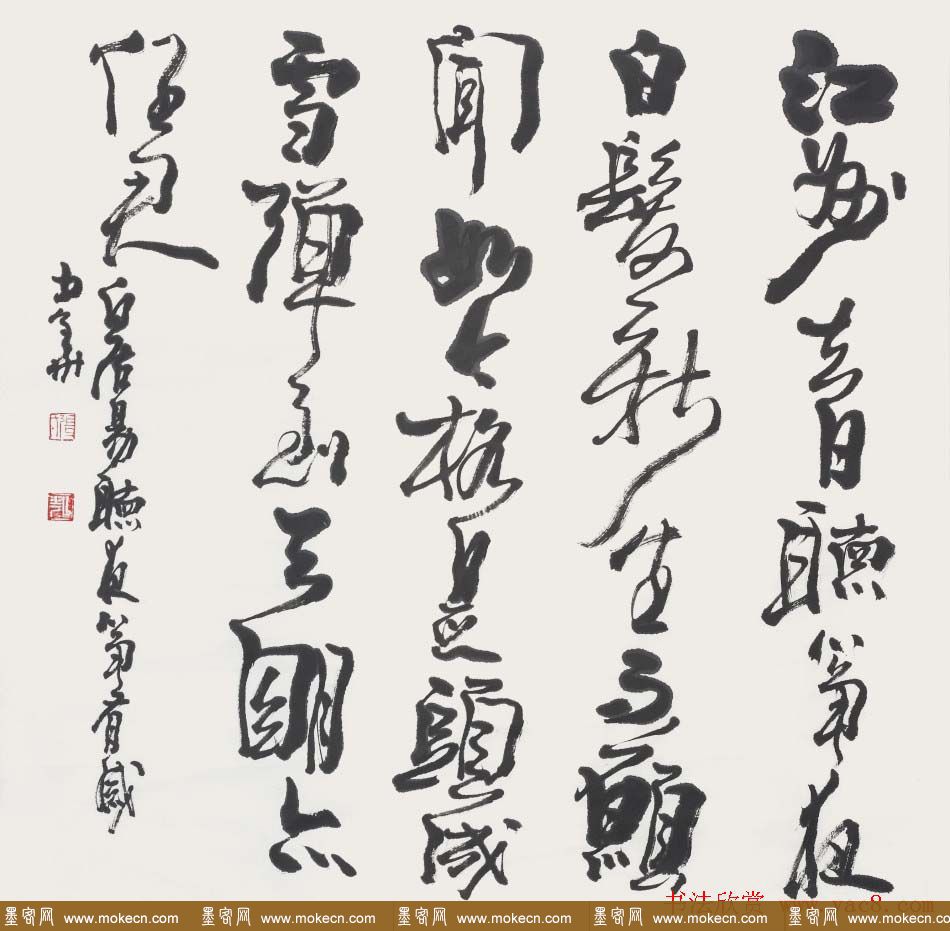 江州去日聽箏夜
白髮新生不願
聞如今格是頭成
雪彈到天明亦
任君
白居易聽夜箏有感
书法欣赏 www.yac8.com
墨客网 www.mokecn.com 墨客网 www.mokecn.com 墨客网 www.mokecn.com 墨客网 www.mokecn.com 墨客网 www.mokecn.com